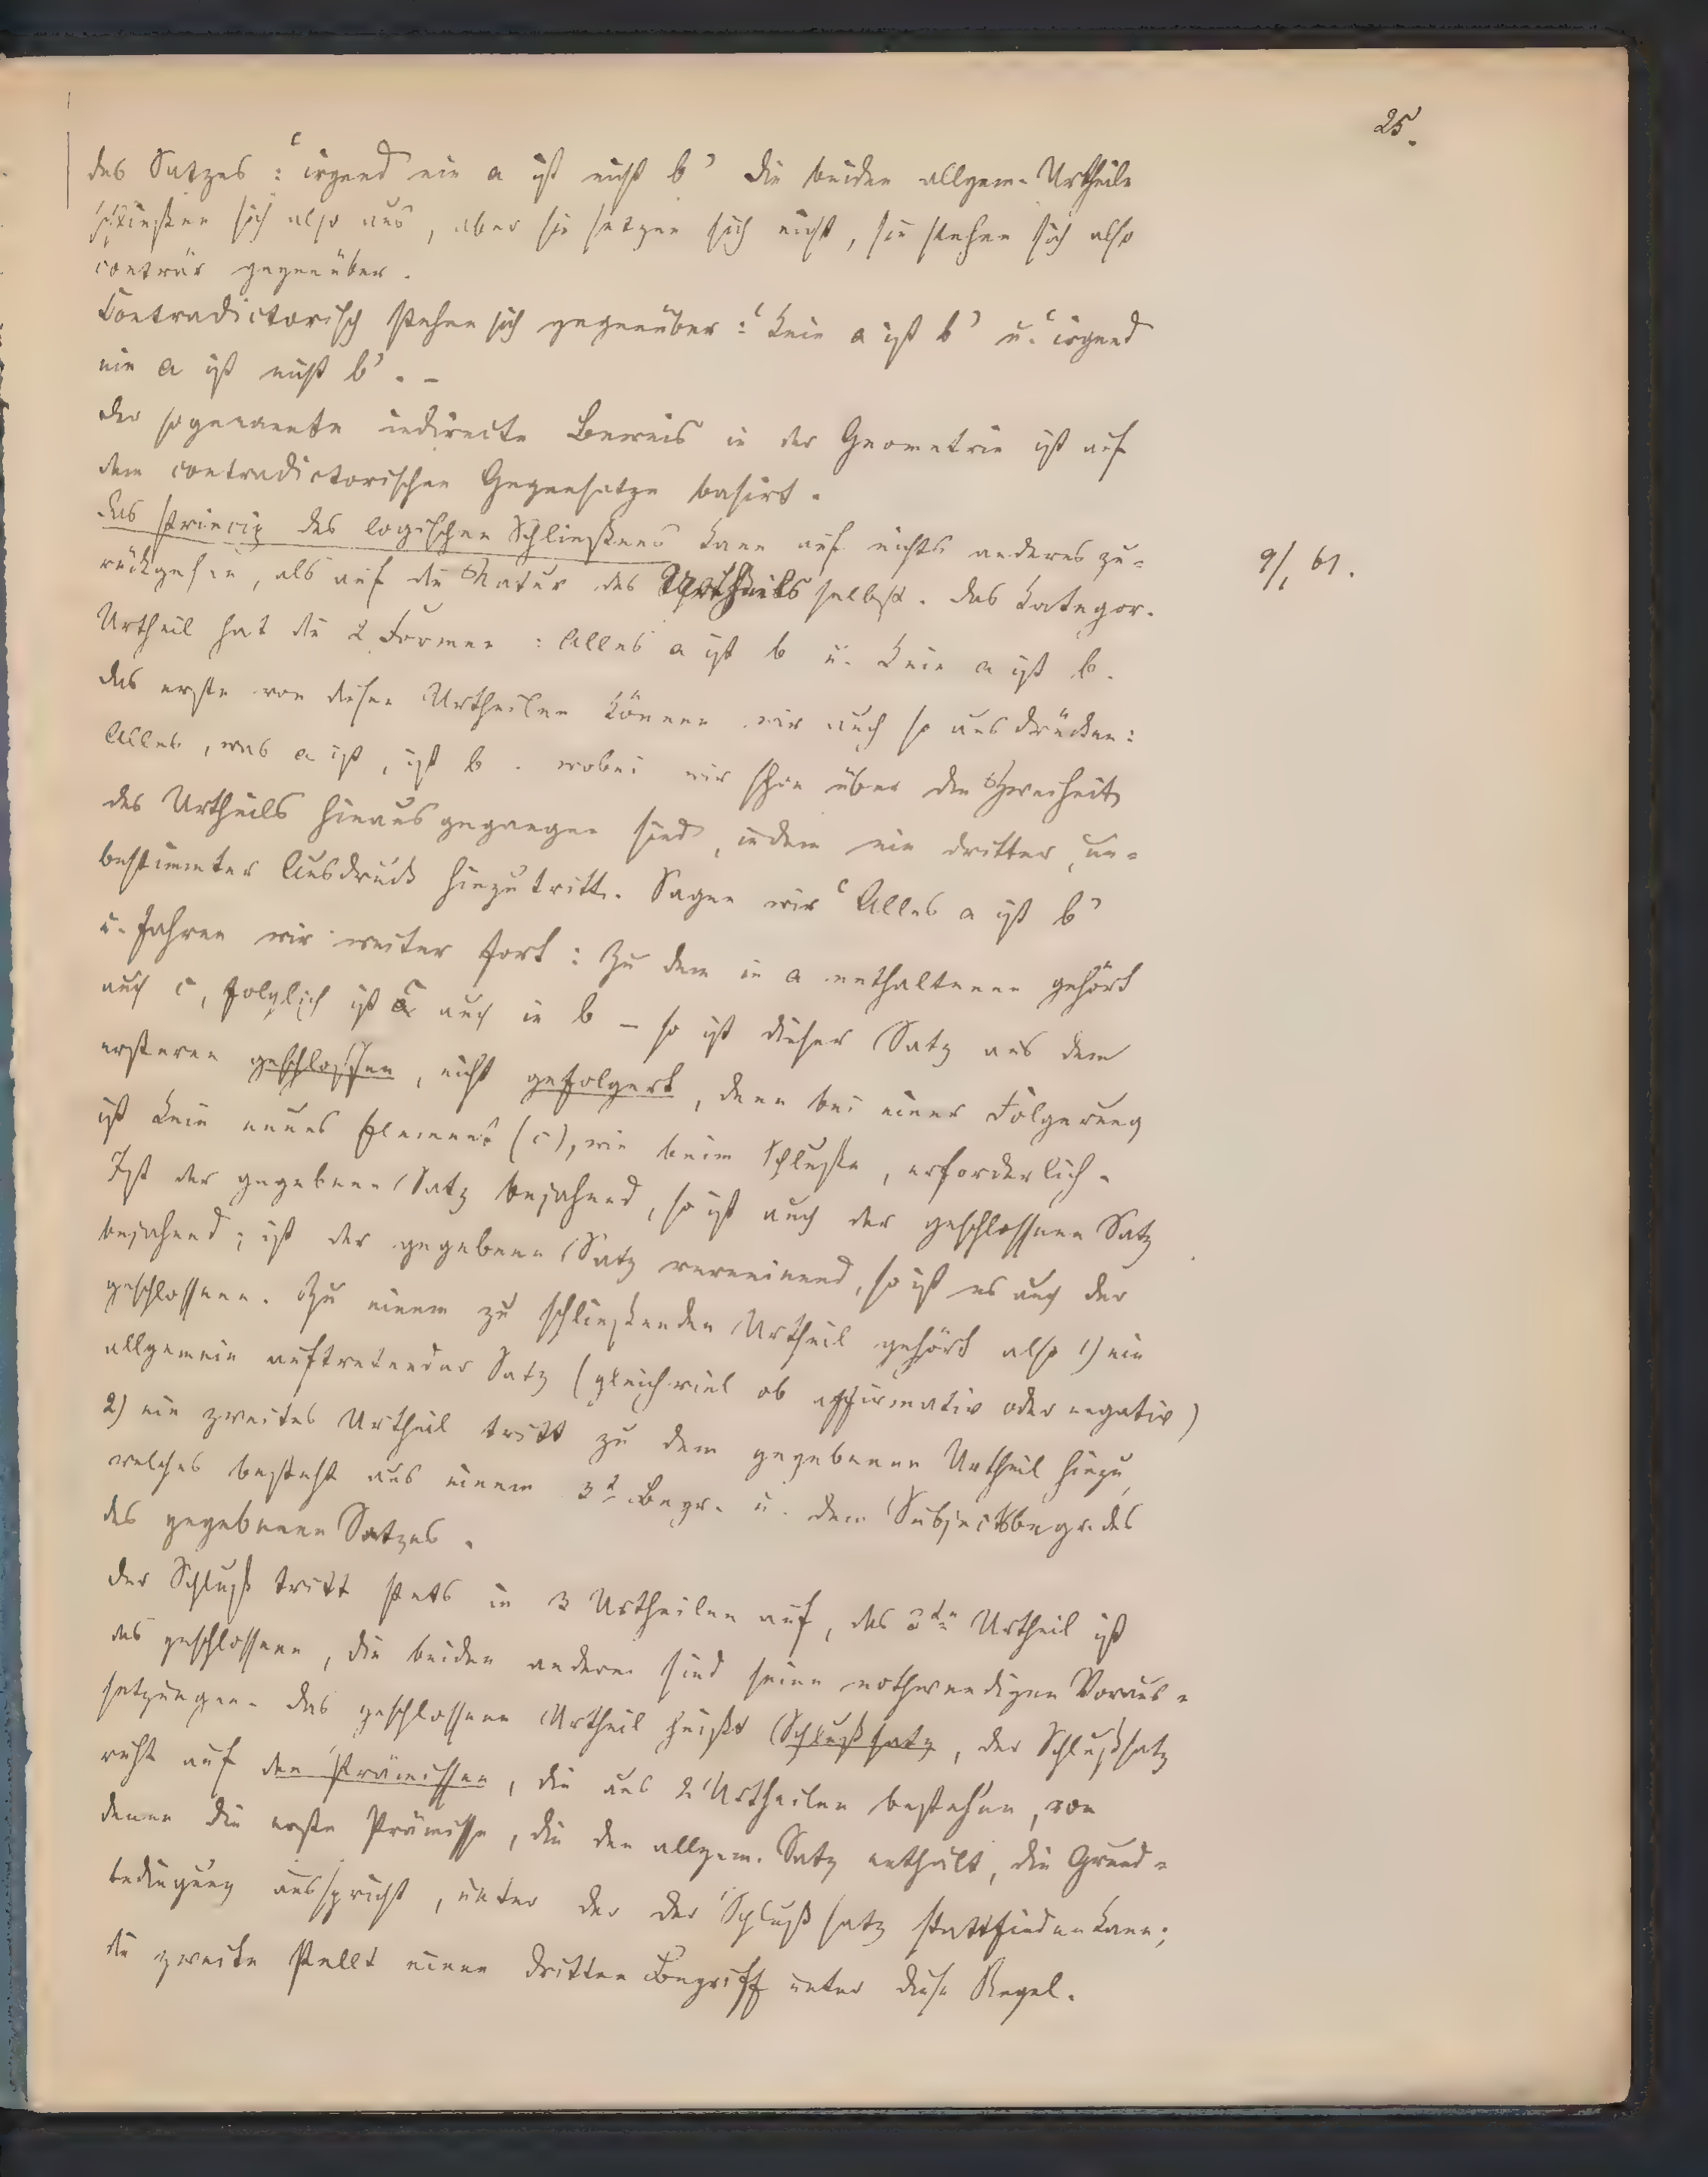 25.
des Satzes: ‘irgend ein a ist nicht b’ Die beiden allgem. Urtheile
schließen sich also aus, aber sie setzen sich nicht, sie stehen sich also
conträr gegenüber.
Contradictorisch stehen sich gegenüber: ‘Kein a ist b’ u. ‘irgend
ein a ist nicht b’. –
Der sogenannte indirecte Beweis in der Geometrie ist auf
dem contradictorischen Gegensatze basirt.
Das Princip des logischen Schließens kann auf nichts anderes zu-
9/1 61.
rückgehen, als auf die Natur des Urtheils selbst. Das kategor.
Urtheil hat die 2 Formen: Alles a ist b u. Kein a ist b.
Das erste von diesen Urtheilen können wir auch so ausdrücken:
Alles, was a ist, ist b. wobei wir schon über die Zweiheit
des Urtheils hinausgegangen sind, indem ein dritter, un-
bestimmter Ausdruck hinzutritt. Sagen wir ‘Alles a ist b’
u. fahren wir weiter fort: Zu dem in a enthaltenen gehört
auch c, folglich ist c auch in b – so ist dieser Satz aus dem
ersteren geschlossen, nicht gefolgert, denn bei einer Folgerung
ist kein neues Element (c), wie beim Schluße, erforderlich.
Ist der gegebene Satz bejahend, so ist auch der geschlossene Satz
bejahend; ist der gegebene Satz verneinend, so ist es auch der
geschlossene. Zu einem zu schließenden Urtheil gehört also 1) ein
allgemein auftretender Satz (gleichviel ob affirmativ oder negativ)
2) ein zweites Urtheil tritt zu dem gegebenen Urtheil hinzu,
welches besteht aus einem 3t. Begr. u. dem Subjectsbegr. des
des gegebenen Satzes.
Der Schluß tritt stets in 3 Urtheilen auf, das 3te Urtheil ist
das geschlossene, die beiden anderen sind seine nothwendigen Voraus-
setzungen. Das geschlossene Urtheil heißt Schlußsatz, der Schlußsatz
ruht auf den Prämissen, die aus 2 Urtheilen bestehen, von
denen die erste Prämisse, die den allgem. Satz enthält, die Grund-
bedingung ausspricht, unter der der Schlußsatz stattfinden kann;
die zweite stellt einen dritten Begriff unter diese Regel.